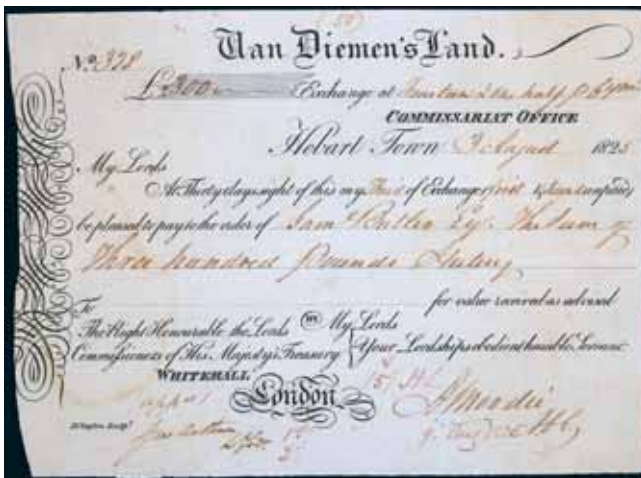 Van Diemen's Land.
No. 328
£300 Exchange at Fourteen & One half P Cent
COMMISSARIAT OFFICE
Hobart Town 3 August 1825
My Lords
At Thirty days sight of this my Third of Exchange (first & Second unpaid)
be pleased to pay to the order of Sam Butler Esq. The Sum of
Three hundred Pounds Sterling
for value received as advised
To
The Right Honourable the Lords My Lords
Commissioners of His Majesty's Treasury Your Lordships obedient humble Servant
WHITEHALL
London
A Moodie